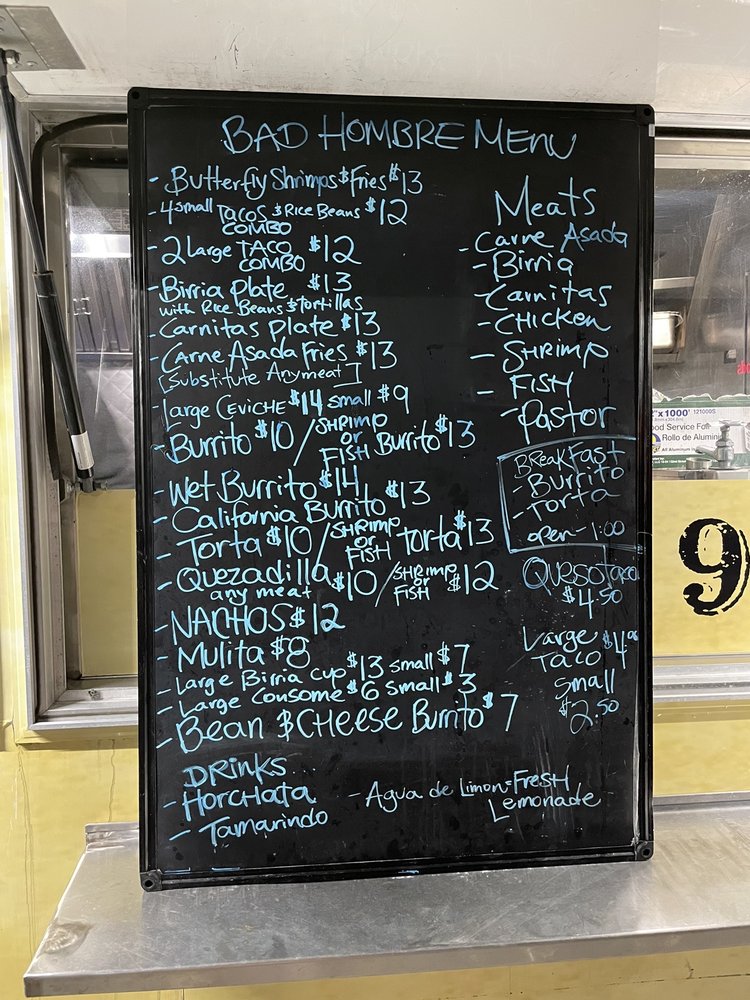 BAD HOMBRE MENU
- Butterfly Shrimps & Fries $13
- 4 small Tacos & Rice Beans $12
COMBO
- 2 Large TACO $12
COMBO
- Birria Plate $13
with Rice Beans & tortillas
- Carnitas Plate $13
- Carne Asada Fries $13
[Substitute Any meat]
- Large Ceviche $14 small $9
- Burrito $10 / SHRIMP or FISH Burrito $13
- Wet Burrito $14
- California Burrito $13
- Torta $10 / SHRIMP or FISH torta $13
- Quezadilla $10 / SHRIMP or FISH $12
any meat
- NACHOS $12
- Mulita $8
- Large Birria cup $13 small $7
- Large Consome $6 small $3
- Bean & CHEESE Burrito $7
DRINKS
- HORCHATA
- Tamarindo
- Agua de Limon-FRESH
Lemonade
Meats
- Carne Asada
- Birria
- Carnitas
- CHICKEN
- SHRIMP
- FISH
- Pastor
BREAKFAST
- Burrito
- Torta
open - 1:00
QUESOTACO
$4.50
Large $4
TACO
small
$2.50
"x1000' 121000S
ood Service Foil
Rollo de Alumini
9